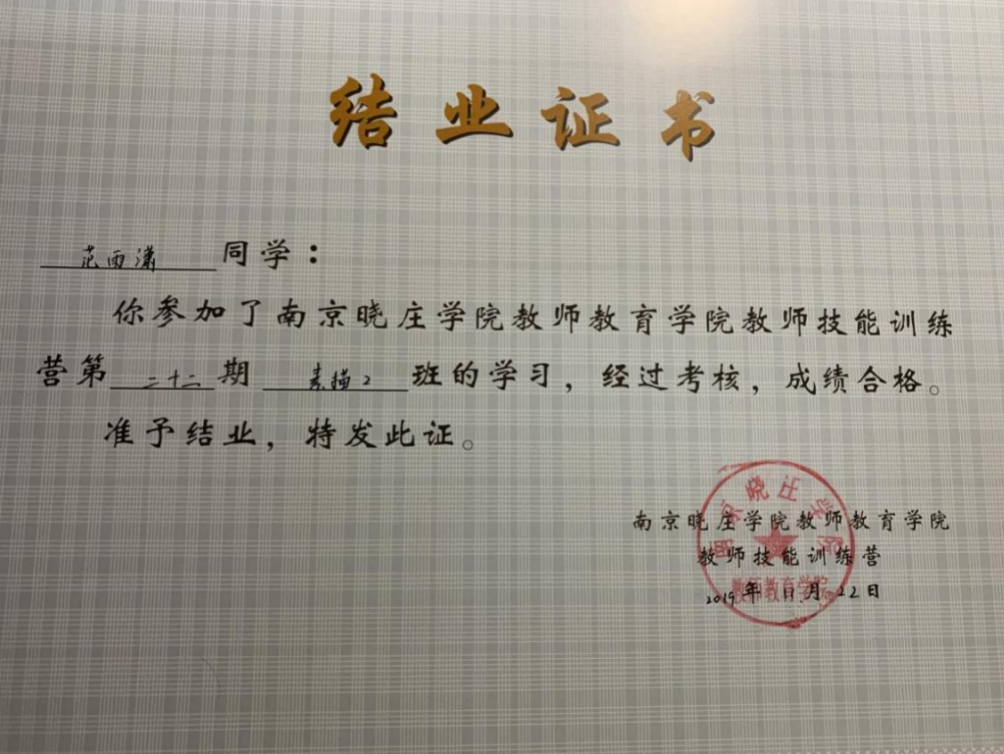 结业证书
范雨潇 同学：
你参加了南京晓庄学院教师教育学院教师技能训练
营第 二十二 期 素描2 班的学习，经过考核，成绩合格。
准予结业，特发此证。
南京晓庄学院教师教育学院
教师技能训练营
2019年 11月 22日
南京晓庄学院
教师教育学院